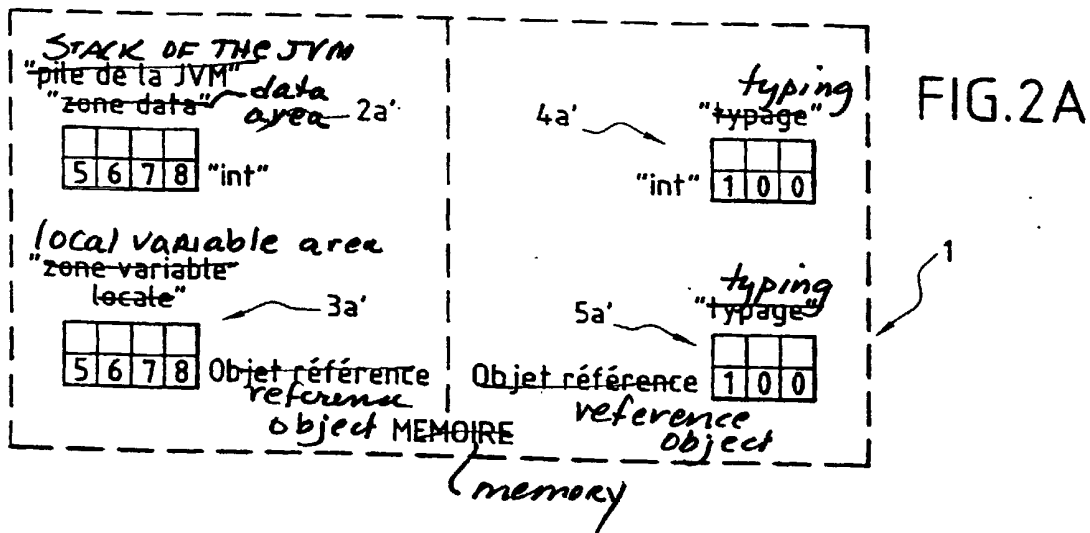 STACK OF THE JVM
"pile de la JVM"
"zone data" data
area 2a'
5 6 7 8 "int"
local variable area
"zone variable
locale"
3a'
5 6 7 8 Objet référence
reference
object MEMOIRE
memory
typing
4a' "typage"
"int" 1 0 0
typing
5a' "typage"
Objet référence 1 0 0
reference
object
1
FIG.2A